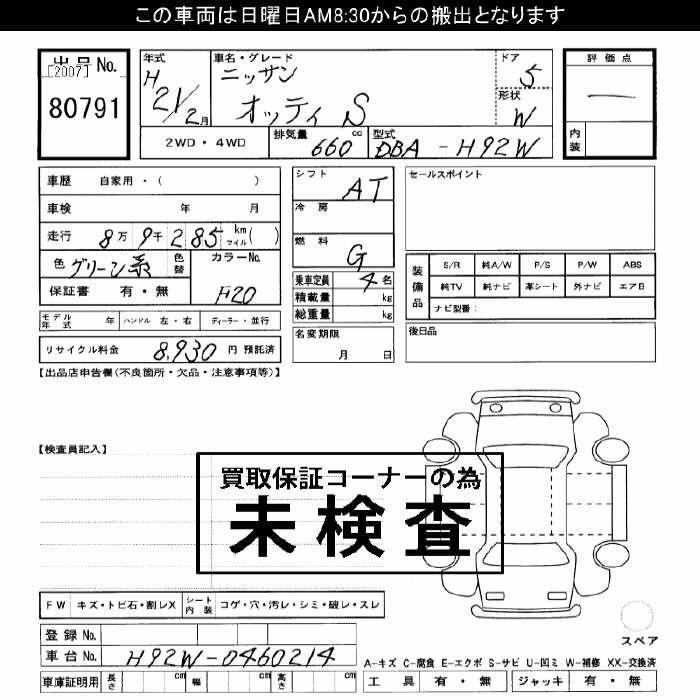 この車両は日曜日AM8:30からの搬出となります
出品No.
[2007]
80791
年式
H21/2月
車名・グレード
ニッサン
オッティ S
ドア
5
形状
W
評価点
―
内装
2WD・4WD
排気量 660 cc
型式 DBA-H92W
車歴 自家用・( )
車検 年 月
走行 8万9千285 km マイル( )
色 グリーン系 色替
カラーNo. F20
保証書 有・無
モデル年式 年 ハンドル 左・右 ディーラー・並行
リサイクル料金 8,930 円 預託済
シフト AT
冷房
燃料 G
乗車定員 4名
積載量 kg
総重量 kg
名変期限 月 日
セールスポイント
装備品
S/R 純A/W P/S P/W ABS
純TV 純ナビ 革シート 外ナビ エアB
ナビ型番:
後日品
【出品店申告欄(不良箇所・欠品・注意事項等)】
【検査員記入】
買取保証コーナーの為
未検査
FW キズ・トビ石・割レX シート内装 コゲ・穴・汚レ・シミ・破レ・スレ
登録No.
車台No. H92W-0460214
車庫証明用 長さ cm 幅 cm 高さ cm
スペア
A-キズ C-腐食 E-エクボ S-サビ U-凹ミ W-補修 XX-交換済
工具 有・無 ジャッキ 有・無